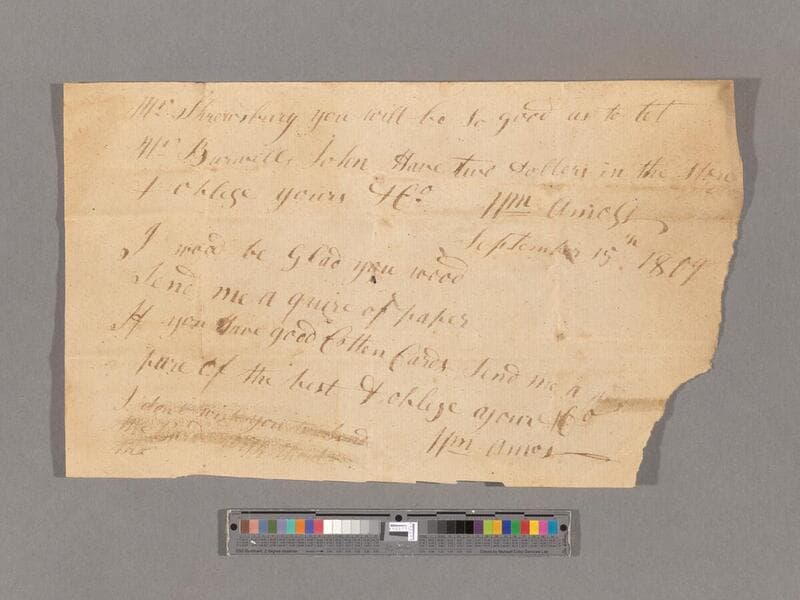 Mr Shrowsbury you will be so good as to let
Mr Burwells John Have two Dollers in the Store
& oblege yours &Co Wm Amos
September 15th 1809
I wood be Glad you wood
Send me a quire of paper
If you Have good Cotten Cards Send me a
pare of the best & oblege yours &Co
Wm Amos
I dont wish you to Send
me